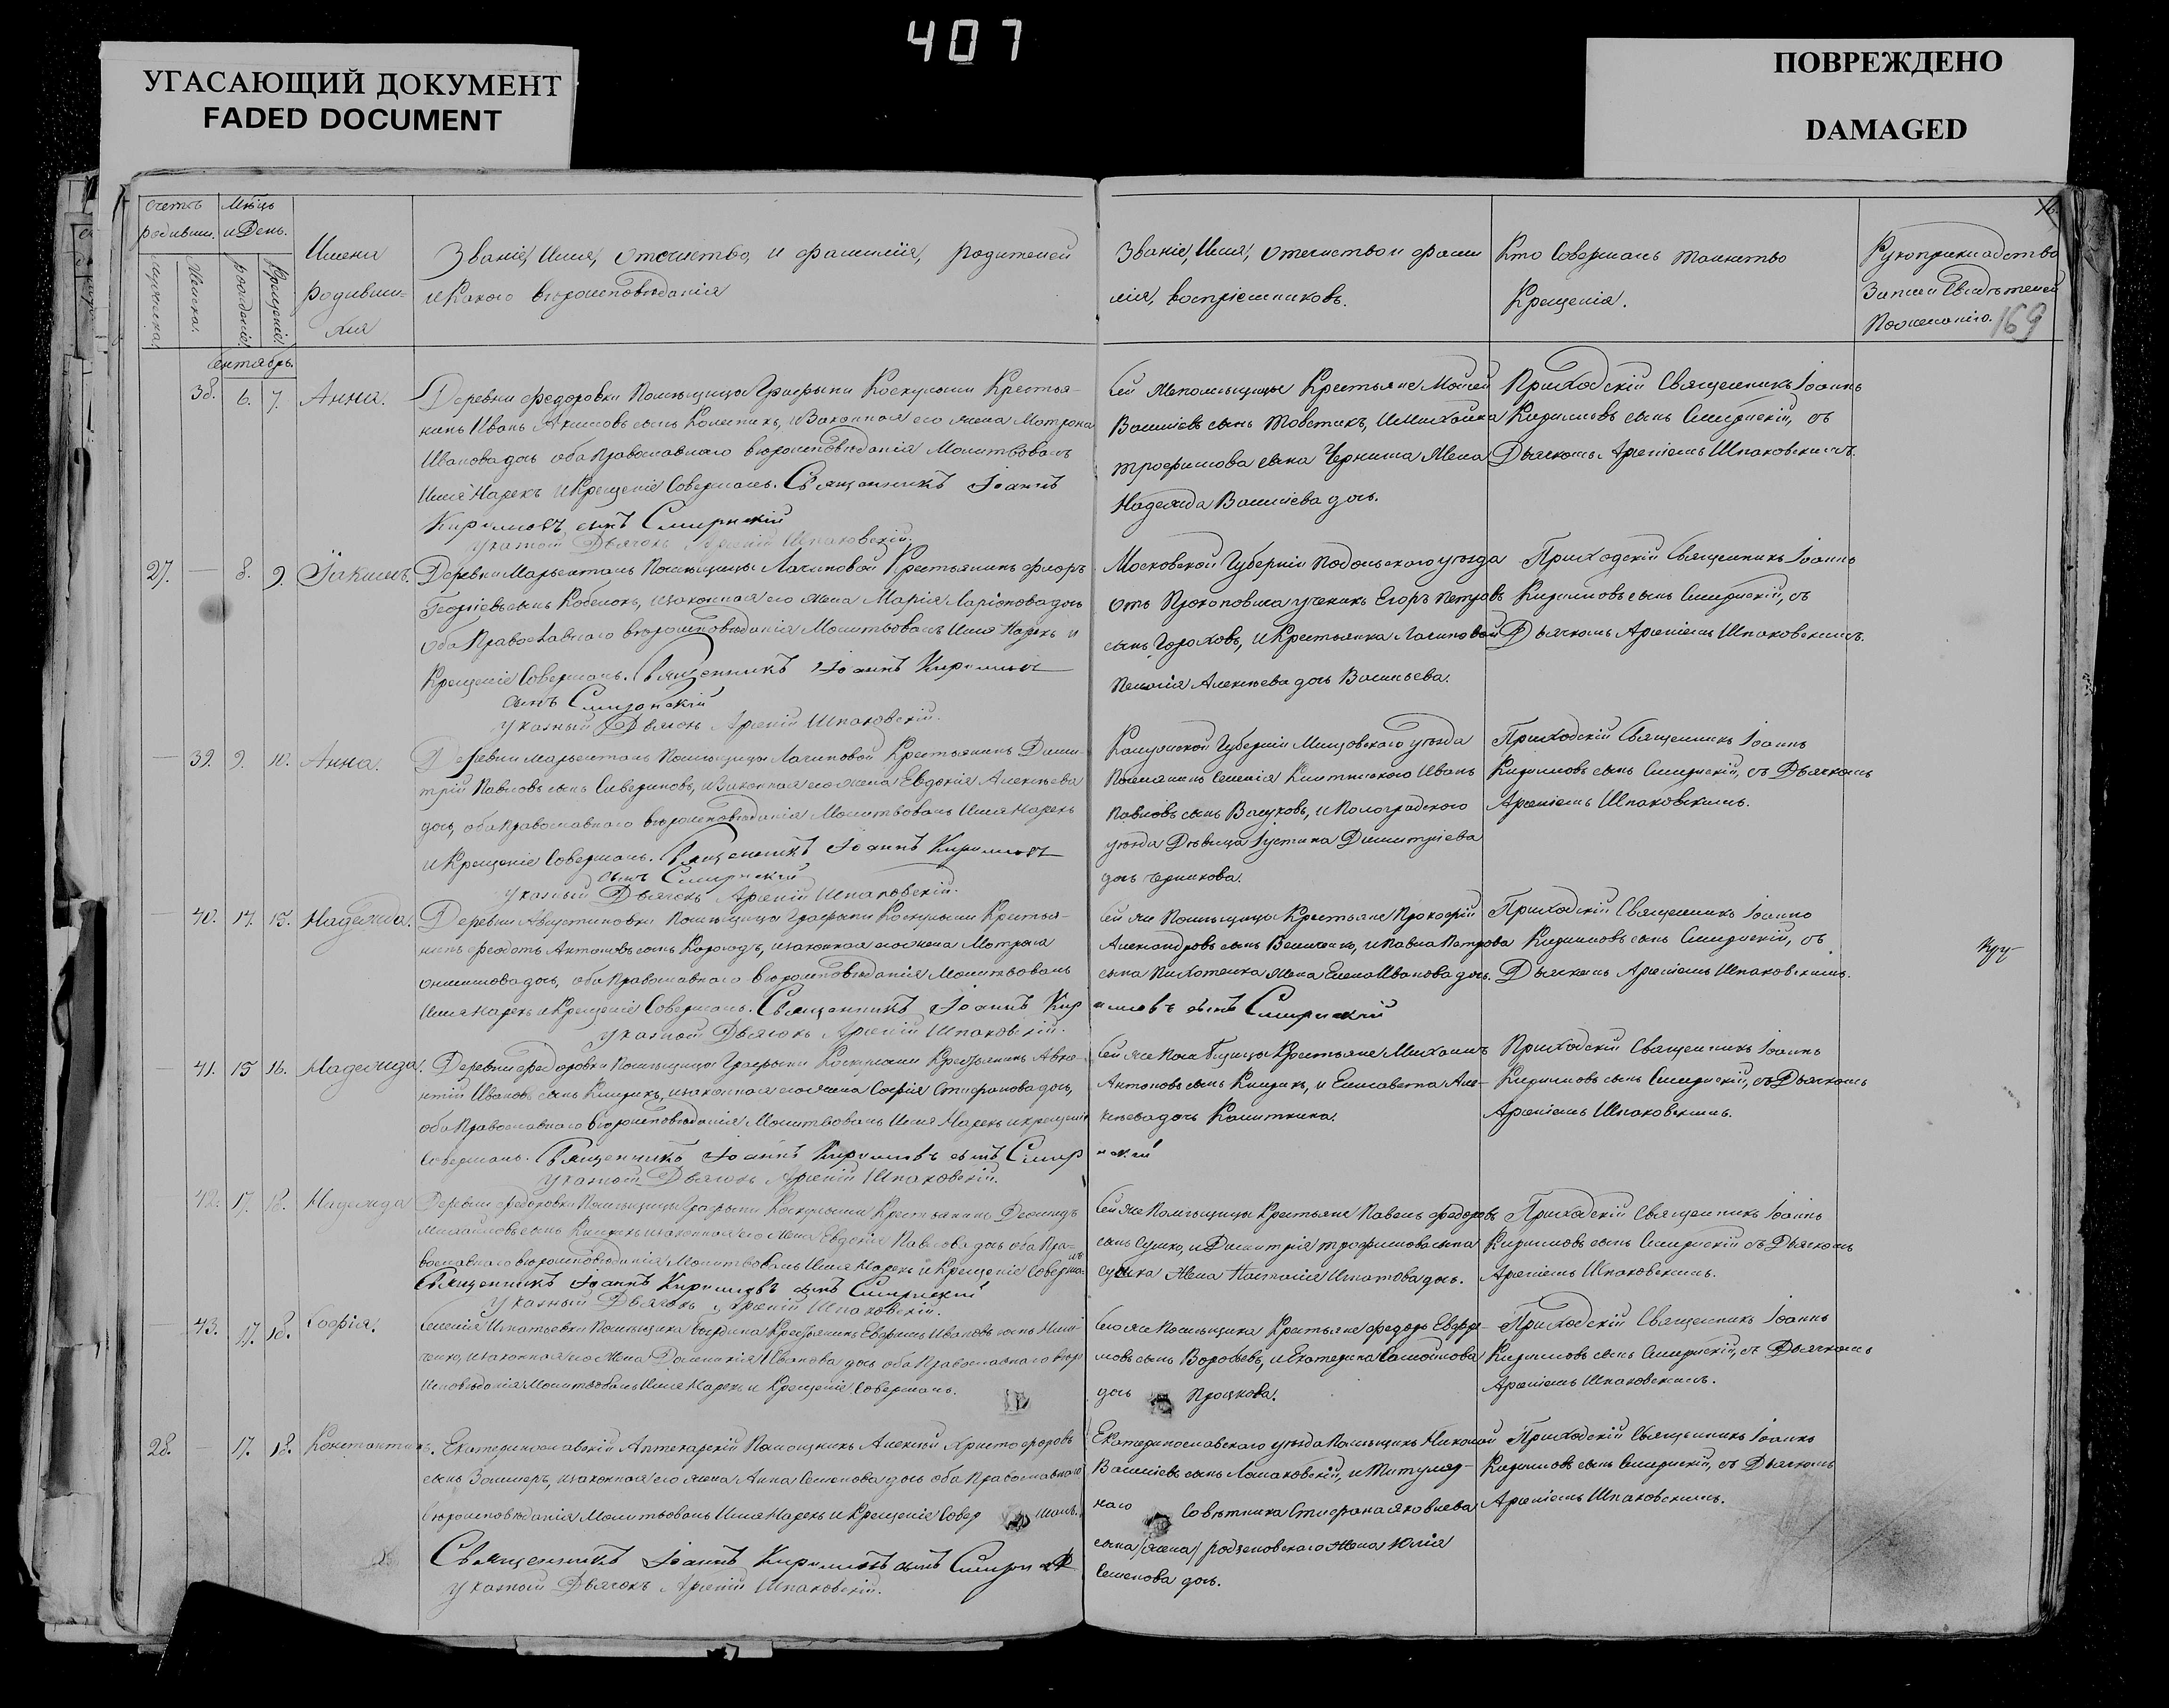 407
УГАСАЮЩИЙ ДОКУМЕНТ
FADED DOCUMENT
ПОВРЕЖДЕНО
DAMAGED
счетъ родивши.
Мѣцъ и День.
Имена родивши-
хся
Званіе, Имя, отечество, и фамилія, родителей
и Какого вѣроисповѣданія
Званіе, Имя, отечество и фами
лія, воспріемниковъ.
Кто Совершалъ таинство
Крещенія.
Рукоприкладство
Записи Свидѣтелей
По желанію.
169
Сентябрь.
38. 6. 7. Анна.
Деревни Федоровки Помѣщицы Графыни Крестья-
нинъ Иванъ сынъ и Законная его жена Матрона
Иванова дочь оба православнаго вѣроисповѣданія Молитвовалъ
Имя Нарекъ и Крещеніе Совершалъ. Священникъ Іоаннъ
Кирилловъ сынъ Смирнскій
указной Дьячокъ Арсеній Шпаковскій.
Сей же помѣщицы Крестьяне Моисей
Василіевъ сынъ Товстикъ, и Михаила
трофимова сына Черниша Жена
Надежда Василіева дочь.
Приходскій Священникъ Іоаннъ
Кирилловъ сынъ Смирнскій, съ
Дьячкомъ Арсеніемъ Шпаковскимъ.
27. 8. 9. Іакимъ.
Деревни Марьенталь Помѣщицы Лагиновой Крестьянинъ Флоръ
Георгіевъ сынъ Кобелокъ, и законная его жена Марія Ларіонова дочь
оба Православнаго вѣроисповѣданія Молитвовалъ Имя Нарекъ и
Крещеніе Совершалъ. Священникъ Іоаннъ Кирилловъ
сынъ Смирнскій
указный Дьячокъ Арсеній Шпаковскій.
Московской Губерніи Подольскаго уѣзда
отъ ученикъ Егоръ Петровъ
сынъ Гороховъ, и Крестьянка Лагиновой
Пелагія Алексѣева дочь Васильева.
Приходскій Священникъ Іоаннъ
Кирилловъ сынъ Смирнскій, съ
Дьячкомъ Арсеніемъ Шпаковскимъ.
39. 9. 10. Анна.
Деревни Марьенталь Помѣщицы Лагиновой Крестьянинъ Дими-
трій Павловъ сынъ Сивериновъ, и Законная его жена Евдокія Алексѣева
дочь, оба православнаго вѣроисповѣданія Молитвовалъ Имя нарекъ
и Крещеніе Совершалъ. Священникъ Іоаннъ Кирилловъ
сынъ Смирнскій
указный Дьячокъ Арсеній Шпаковскій.
Калужской Губерніи Мещовскаго уѣзда
Селенія Иванъ
Павловъ сынъ и Павлоградскаго
уѣзда Дѣвица Іустина Димитріева
дочь Черникова.
Приходскій Священникъ Іоаннъ
Кирилловъ сынъ Смирнскій, съ Дьячкомъ
Арсеніемъ Шпаковскимъ.
40. 14. 15. Надежда.
Деревни Августиновки Помѣщицы Графыни Крестья-
нинъ Феодотъ Антоновъ сынъ и законная его жена Матрона
Онисимова дочь, оба Православнаго вѣроисповѣданія Молитвовалъ
Имя нарекъ и Крещеніе Совершалъ. Священникъ Іоаннъ Кир
илловъ сынъ Смирнскій
указной Дьячокъ Арсеній Шпаковскій.
Сей же Помѣщицы Крестьяне Прокофій
Александровъ сынъ Величенко, и Павла Петрова
сына Пихотенка жена Елена Иванова дочь.
Приходскій Священникъ Іоаннъ
Кирилловъ сынъ Смирнскій, съ
Дьячкомъ Арсеніемъ Шпаковскимъ.
41. 15 16. Надежда.
Деревни Федоровки Помѣщицы Графыни Крестьянинъ Авксе-
нтій Ивановъ сынъ и законная его жена Софія Стефанова дочь,
оба Православнаго вѣроисповѣданія Молитвовалъ Имя Нарекъ и крещеніе
Совершалъ. Священникъ Іоаннъ Кирилловъ сынъ Смир
нскій
указной Дьячокъ Арсеній Шпаковскій.
Сей же Помѣщицы Крестьяне Михаилъ
Антоновъ сынъ и Елисавета Але-
ксѣева дочь Калиткина.
Приходскій Священникъ Іоаннъ
Кирилловъ сынъ Смирнскій, съ Дьячкомъ
Арсеніемъ Шпаковскимъ.
42. 17. 18. Надежда
Деревни Федоровки Помѣщицы Графыни Крестьянинъ
Михайловъ сынъ и законная его жена Евдокія Павлова дочь оба Пра-
вославнаго вѣроисповѣданія Молитвовалъ Имя Нарекъ и Крещеніе Соверша-
лъ
Священникъ Іоаннъ Кирилловъ сынъ Смирнскій
указный Дьячокъ Арсеній Шпаковскій.
Сей же Помѣщицы Крестьяне Павелъ Федоровъ
сынъ Сушко, и Димитрія трофимова сына
сушка Жена Наталія Игнатова дочь.
Приходскій Священникъ Іоаннъ
Кирилловъ сынъ Смирнскій съ Дьячкомъ
Арсеніемъ Шпаковскимъ.
43. 17. 18. Софія.
Селенія Игнатьевки Помѣщика Крестьянинъ Евфимъ Ивановъ сынъ
и законная его жена Домникія Иванова дочь оба Православнаго вѣро
исповѣданія Молитвовалъ Имя Нарекъ и Крещеніе Совершалъ.
Сего же Помѣщика Крестьяне Федоръ Евфи-
мовъ сынъ Воробьевъ, и Екатерина Самойлова
дочь Процкова.
Приходскій Священникъ Іоаннъ
Кирилловъ сынъ Смирнскій, съ Дьячкомъ
Арсеніемъ Шпаковскимъ.
28. 17. 18. Константинъ.
Екатеринославскій Аптекарскій Помощникъ Алексѣй Христофоровъ
сынъ и законная его жена Анна Семенова дочь оба Православнаго
вѣроисповѣданія Молитвовалъ Имя Нарекъ и Крещеніе Совер шалъ.
Священникъ Іоаннъ Кирилловъ сынъ Смирнскій
указной Дьячокъ Арсеній Шпаковскій.
Екатеринославскаго уѣзда Помѣщикъ Николай
Василіевъ сынъ и Титуляр-
наго Совѣтника Стефана Яковлева
сына (жена) Родзяновскаго жена Юлія
Семенова дочь.
Приходскій Священникъ Іоаннъ
Кирилловъ сынъ Смирнскій, съ Дьячкомъ
Арсеніемъ Шпаковскимъ.